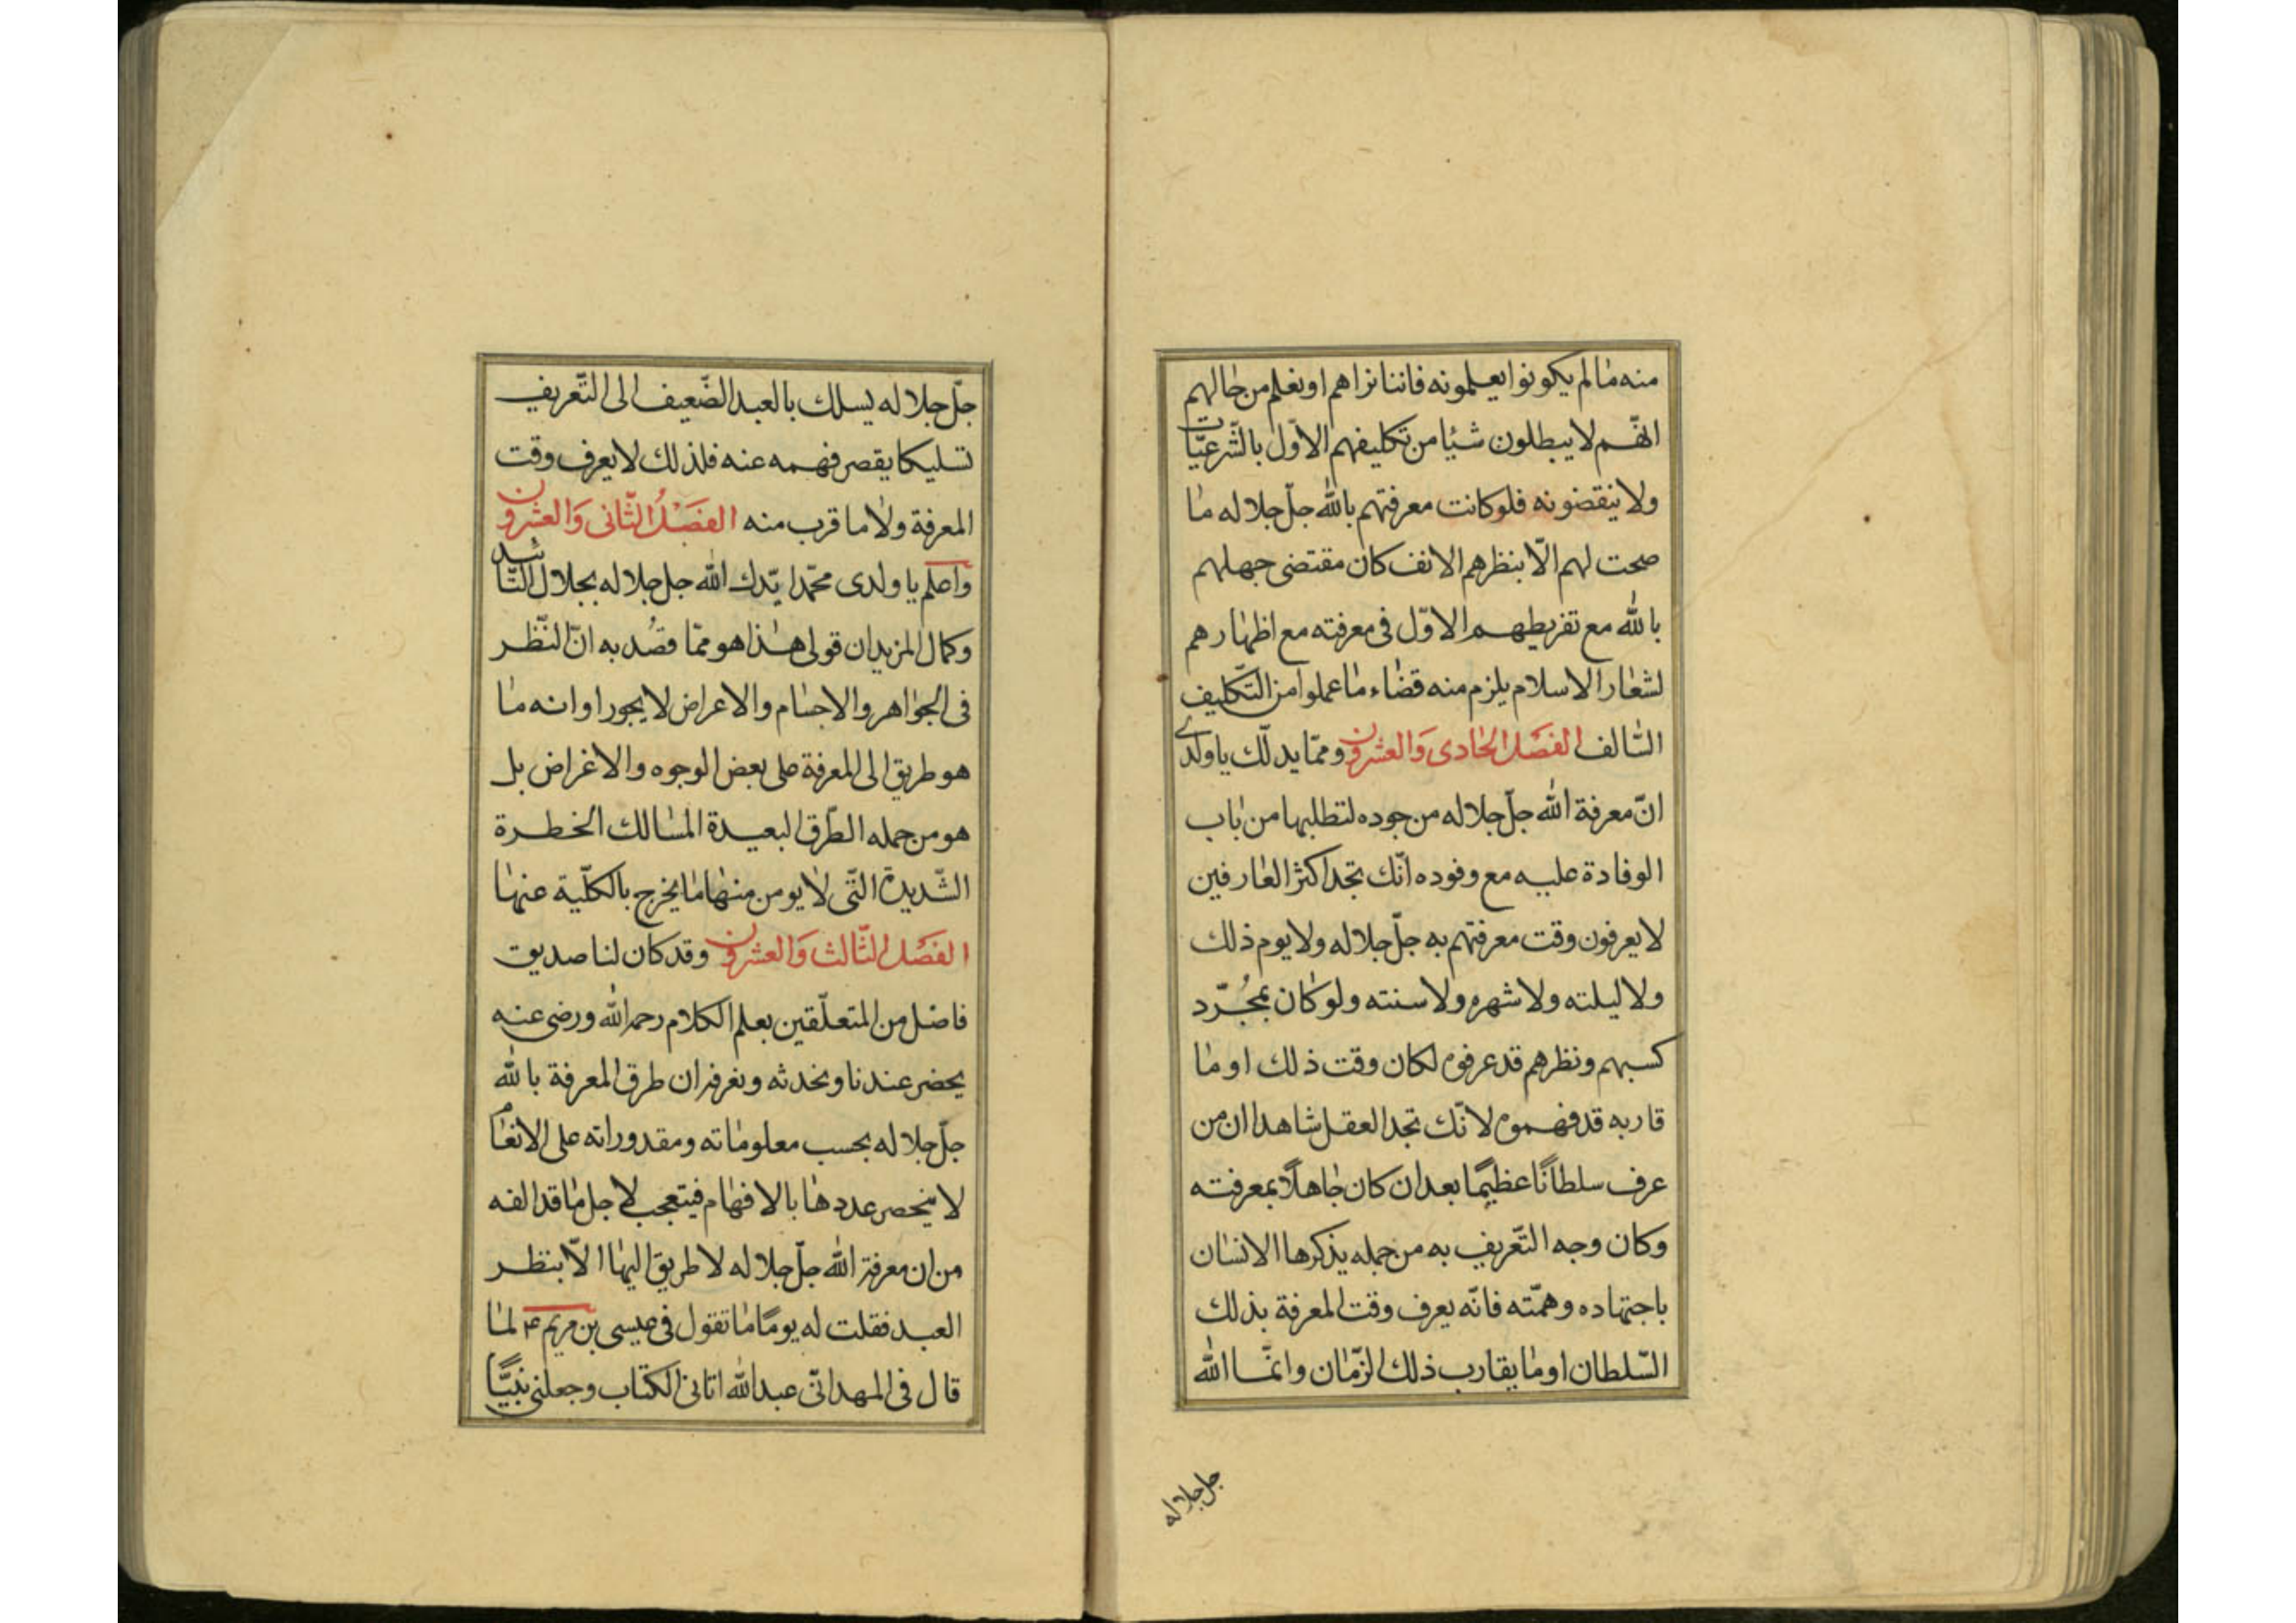 منه ما لم يكونوا يعلمونه فاننا نراهم او نعلم من حالهم
انهم لا يبطلون شيئا من تكليفهم الاوّل بالشّرعيّات
ولا ينقضونه فلو كانت معرفتهم بالله جلّ جلاله ما
صحت لهم الّا بنظرهم الانف كان مقتضى جهلهم
بالله مع تفريطهم الاوّل فى معرفته مع اظهارهم
لشعار الاسلام يلزم منه قضاء ما عملوا من التّكليف
السّالف الفصل الحادى وَالعشرون وممّا يدلّك يا ولدى
انّ معرفة الله جلّ جلاله من جوده لتطلبها من باب
الوفادة عليه مع وفوده انّك تجد اكثر العارفين
لا يعرفون وقت معرفتهم به جلّ جلاله ولا يوم ذلك
ولا ليلته ولا شهره ولا سنته ولو كان بمجُرّد
كسبهم ونظرهم قد عرفوه لكان وقت ذلك او ما
قاربه قد فهموه لانّك تجد العقل شاهدا ان من
عرف سلطانًا عظيمًا بعد ان كان جاهلًا بمعرفته
وكان وجه التّعريف به من جمله يذكرها الانسان
باجتهاده وهمّته فانّه يعرف وقت المعرفة بذلك
السّلطان او ما يقارب ذلك الزّمان وانّما الله
جل جلاله
جلّ جلاله يسلك بالعبد الضّعيف الى التّعريف
تسليكا يقصر فهمه عنه فلذلك لا يعرف وقت
المعرفة ولا ما قرب منه الفَصْلُ الثّانى وَالعشرون
واعلم يا ولدى محمّد ايّدك الله جل جلاله بجلال التّائيد
وكمال المزيد ان قولى هذا هو ممّا قصُد به انّ النّظر
فى الجواهر والاجسام والاعراض لا يجور او انه ما
هو طريق الى المعرفة على بعض الوجوه والاغراض بل
هو من جمله الطّرق البعيدة المسالك الخطرة
الشّديدة التّى لا يومن منها ما يخرج بالكلّية عنها
الفَصْل الثّالث وَالعشرون وقد كان لنا صديق
فاضل من المتعلّقين بعلم الكلام رحمه الله ورضى عنه
يحضر عندنا ونحدثه ونعرفه ان طرق المعرفة بالله
جلّ جلاله بحسب معلوماته ومقدوراته على الانعام
لا ينحصر عددها بالافهام فيتعجب لاجل ما قد الفه
من ان معرفة الله جلّ جلاله لا طريق اليها الّا بنظر
العبد فقلت له يومًا ما تقول فى عيسى بن مريم ع لما
قال فى المهد انّى عبد الله اتانى الكتاب وجعلنى نبيًّا